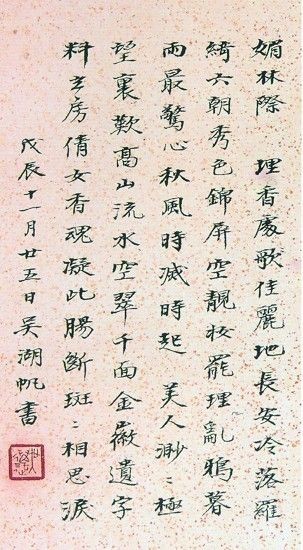 媚林際　理香處歌佳麗地長安冷落羅
綺六朝秀色錦屏空靚妝罷理亂鴉暮
雨最驚心秋風時滅時起　美人渺〻極
望裏歎高山流水空翠千面金徽遺字
料玄房倩女香魂凝此腸斷斑〻相思淚
戊辰十一月廿五日吳湖帆書